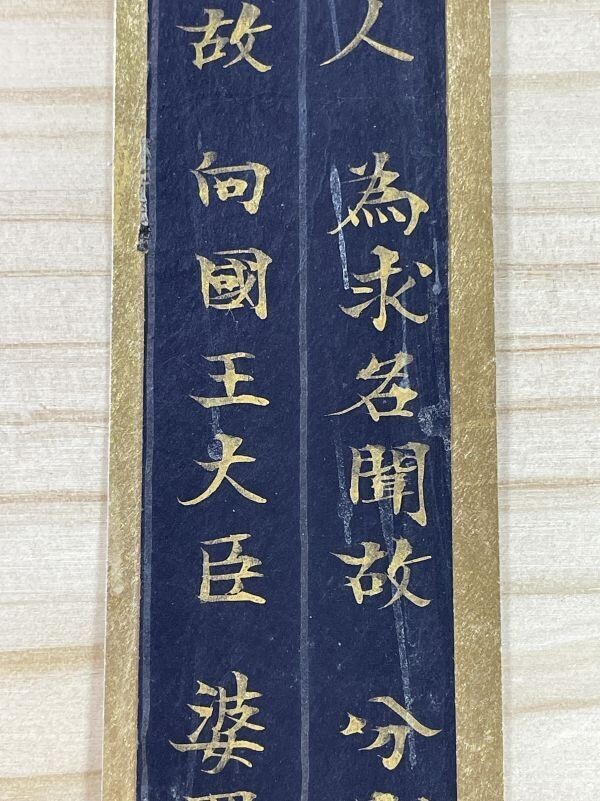 人 為求名聞故 分
故 向國王大臣 婆